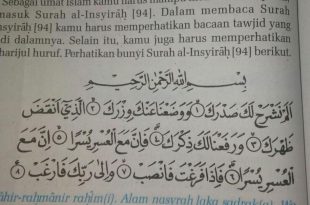 Sebagai umat Islam kamu harus
masuk Surah al-Insyirāḥ [94]. Dalam membaca Surah
-Insyirāḥ [94] kamu harus memperhatikan bacaan tawjid yang
di dalamnya. Selain itu, kamu juga harus memperhatikan
harijul huruf. Perhatikan bunyi Surah al-Insyirāḥ [94] berikut.
بِسْمِ اللهِ الرَّحْمٰنِ الرَّحِيْمِ
اَلَمْ نَشْرَحْ لَكَ صَدْرَكَ ۝١ وَوَضَعْنَا عَنْكَ وِزْرَكَ ۝٢ الَّذِيْٓ اَنْقَضَ
ظَهْرَكَ ۝٣ وَرَفَعْنَا لَكَ ذِكْرَكَ ۝٤ فَاِنَّ مَعَ الْعُسْرِ يُسْرًا ۝٥ اِنَّ مَعَ
الْعُسْرِ يُسْرًا ۝٦ فَاِذَا فَرَغْتَ فَانْصَبْ ۝٧ وَاِلٰى رَبِّكَ فَارْغَبْ ۝٨
-rahmānir rahīm(i). Alam nasyrah laka ṣadrak(a). Wa